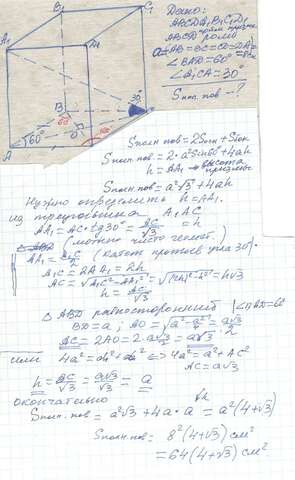 B₁
C₁
A₁
D₁
B
C
A
D
O
60°
60°
30°
Дано:
ABCDA₁B₁C₁D₁
прям призма
ABCD ромб
a=AB=BC=CD=DA=8
∠BAD=60°
∠A₁CA=30°
Sпол.пов -?
Sполн пов = 2Sосн + Sбок
Sполн. пов = 2·a²sin60° + 4ah
h = AA₁ - высота призмы
Sполн пов = a²√3 + 4ah
Нужно определить h=AA₁.
из треугольника A₁AC
AA₁ = AC·tg30° = AC/√3 = h
(можно чисто геомет.)
AA₁ = A₁C/2 (катет против угла 30°)
A₁C = 2AA₁ = 2h
AC = √(A₁C² - AA₁²) = √((2h)² - h²) = h√3
h = AC/√3
△ABD равносторонний (∠BAD=60
BD = a; AO = √(a² - a²/4) = a√3/2
AC = 2AO = 2·a√3/2 = a√3
или 4a² = a² + AC² ⟺ 4a² = a² + AC²
AC = a√3
h = AC/√3 = a√3/√3 = a
окончательно
Sполн. пов = a²√3 + 4a·a = a²(4+√3)
Sполн пов = 8²(4+√3) см²
= 64(4+√3) см²